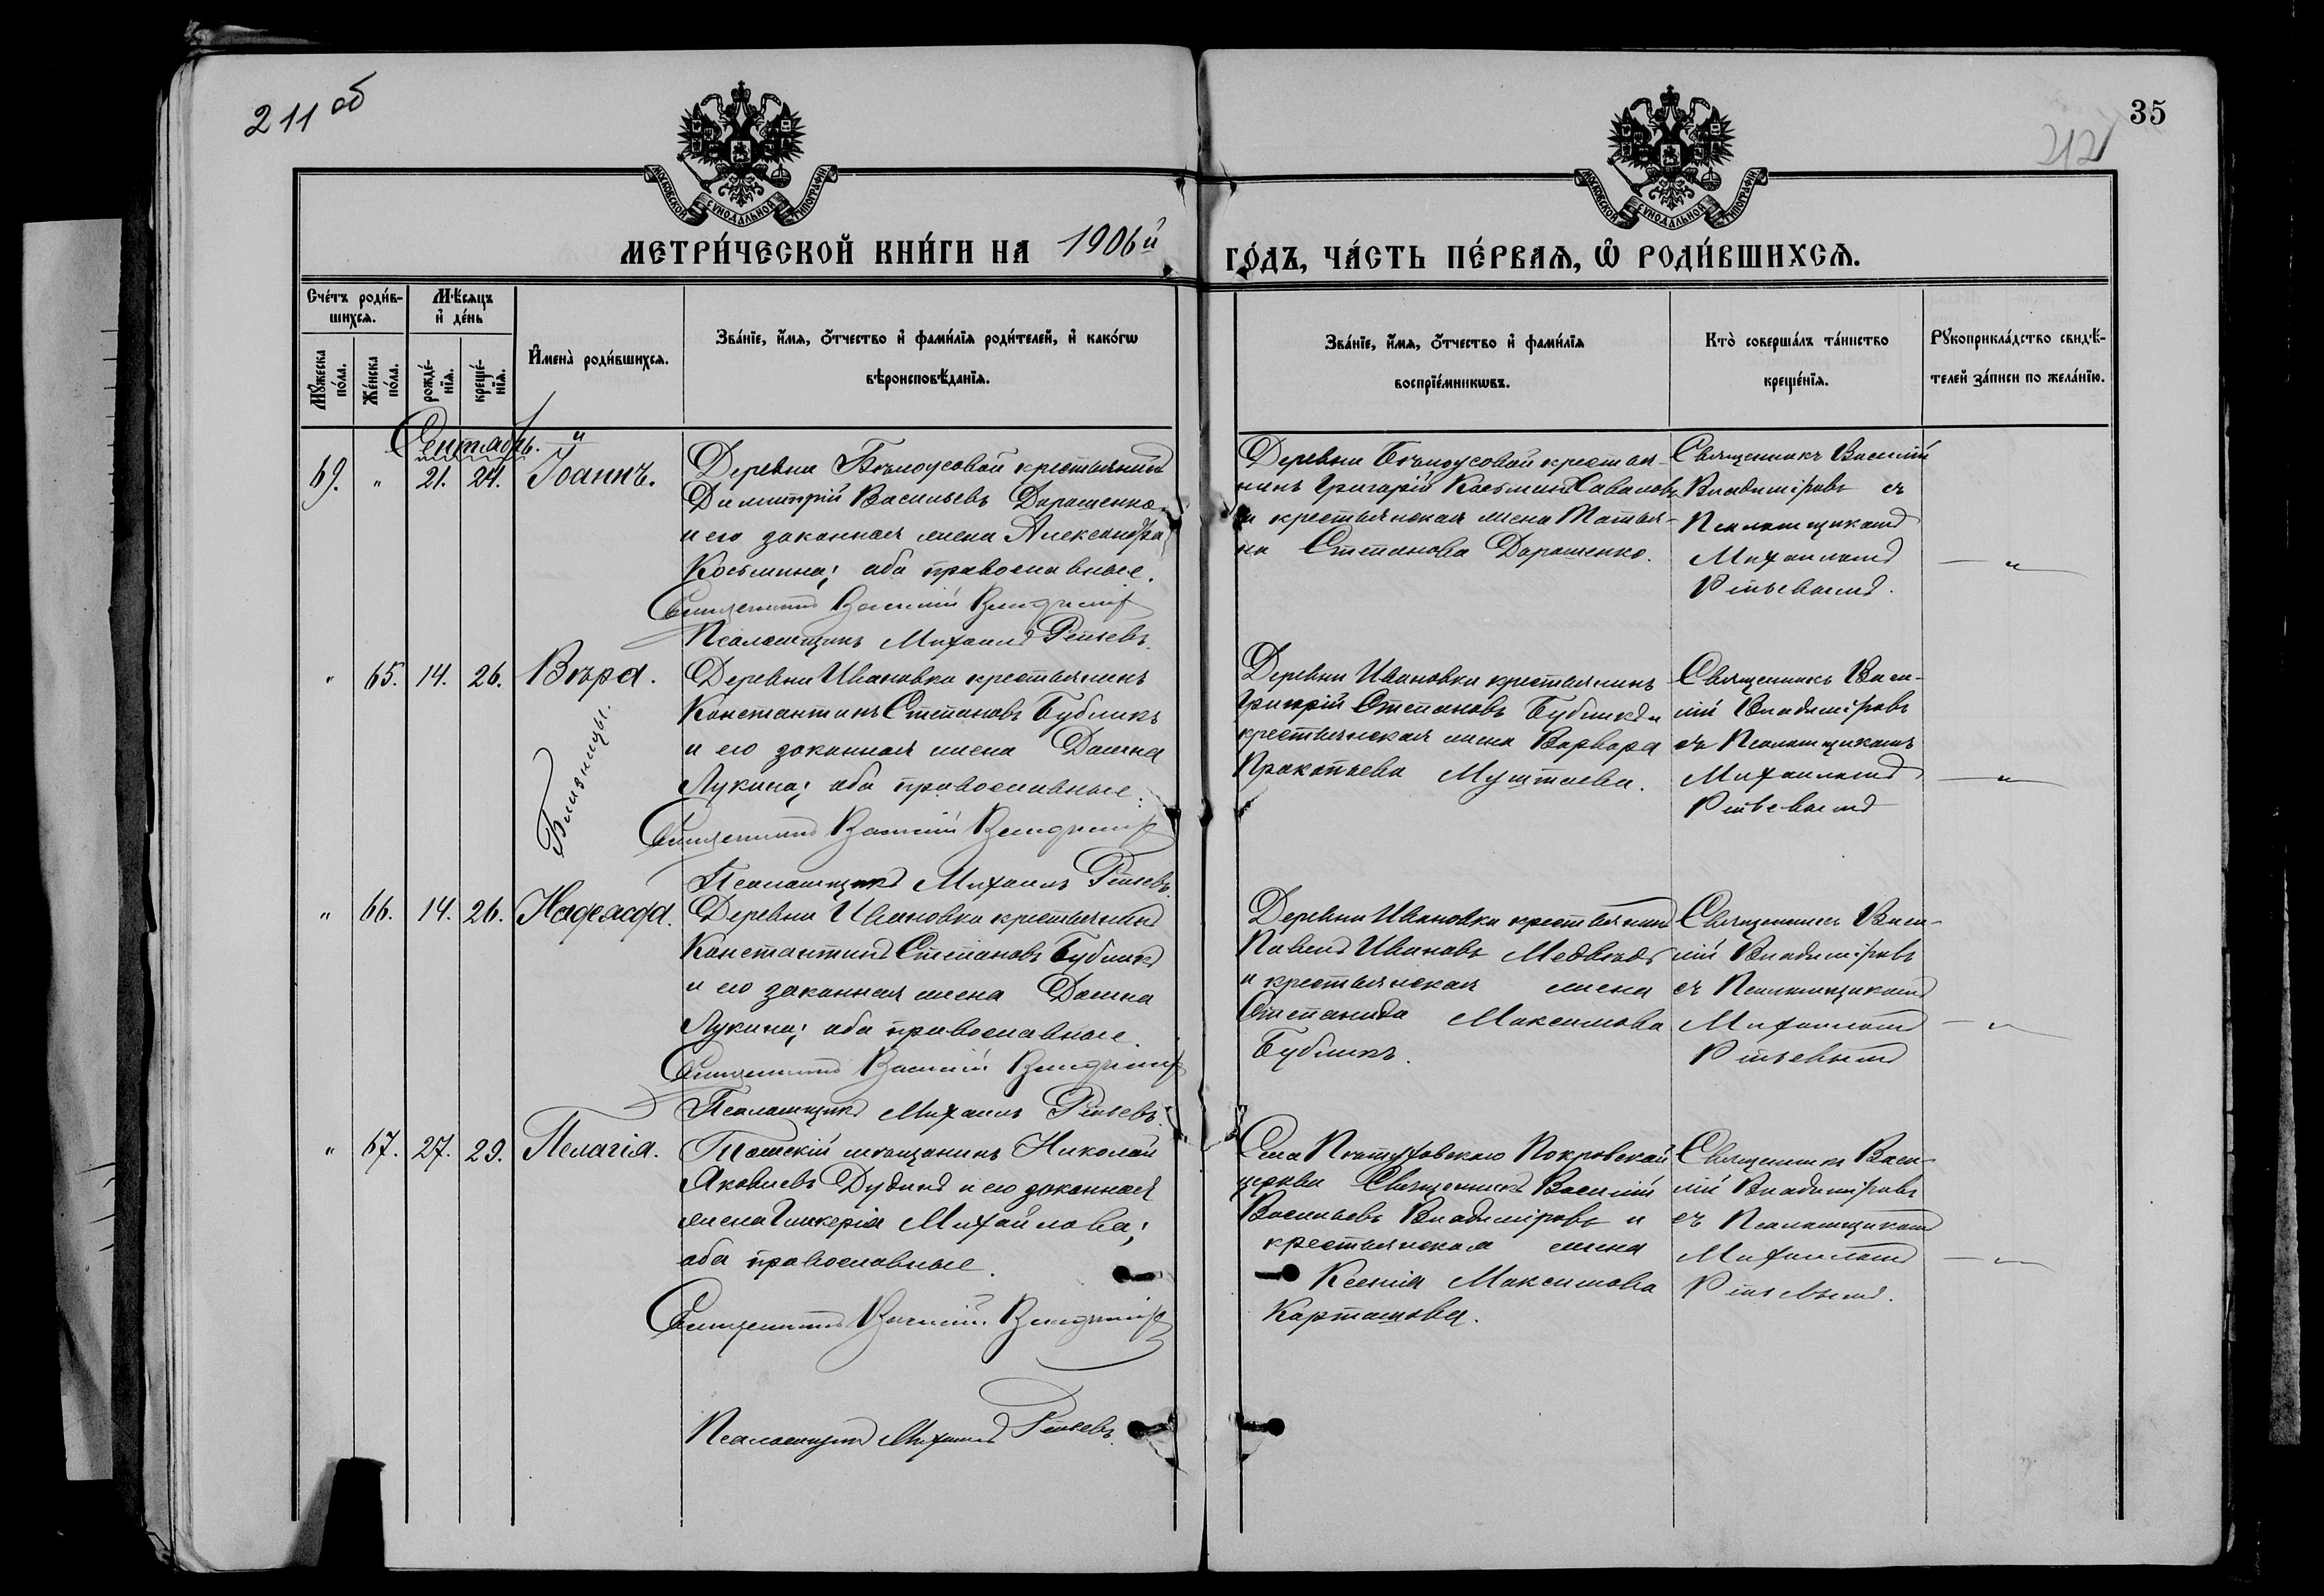 211 об
35
212
МОСКОВСКОЙ СѴНОДАЛЬНОЙ ТИПОГРАФІИ
МОСКОВСКОЙ СѴНОДАЛЬНОЙ ТИПОГРАФІИ
МЕТРИ́ЧЕСКОЙ КНИ́ГИ НА 1906й
ГО́ДЪ, ЧА́СТЬ ПЕ́РВАЯ, Ѡ҆ РОДИ́ВШИХСѦ.
Сче́тъ роди́в-
шихсѧ.
Мꙋ́жеска по́ла.
Же́нска по́ла.
Мѣ́сѧцъ
и҆ де́нь
рожде́-
нїѧ.
креще́-
нїѧ.
И҆мена̀ роди́вшихсѧ.
Зва́нїе, и҆́мѧ, ѻ҆́тчество и҆ фами́лїѧ роди́телей, и҆ како́гѡ
вѣроисповѣ́данїѧ.
Зва́нїе, и҆́мѧ, ѻ҆́тчество и҆ фами́лїѧ
воспрїе́мникѡвъ.
Кто̀ соверша́лъ та́инство
креще́нїѧ.
Рꙋкоприкла́дство свидѣ́-
телей за́писи по жела́нїю.
Сентябрь.
69. " 21. 24. Іоаннъ.
Деревни Бѣлоусовой крестьянинъ
Димитрій Васильевъ Дорошенко
и его законная жена Александра
Косьмина; оба православные.
Священникъ Василій Владиміровъ
Псаломщикъ Михаилъ Рѣпьевъ.
Деревни Бѣлоусовой крестья-
нинъ Григорій Косьминъ
и крестьянская жена Татья-
на Степанова Дорошенко.
Священникъ Василій
Владиміровъ съ
Псаломщикомъ
Михаиломъ
— " —
" 65. 14. 26. Вѣра.
Близнецы.
Деревни Ивановки крестьянинъ
Константинъ Степановъ Бубликъ
и его законная жена Домна
Лукина; оба православные.
Священникъ Василій Владиміровъ
Псаломщикъ Михаилъ Рѣпьевъ.
Деревни Ивановки крестьянинъ
Григорій Степановъ Бубликъ и
крестьянская жена Варвара
Прокопьева
Священникъ Васи-
лій Владиміровъ
съ Псаломщикомъ
Михаиломъ
— " —
" 66. 14. 26. Надежда.
Деревни Ивановки крестьянинъ
Константинъ Степановъ Бубликъ
и его законная жена Домна
Лукина; оба православные.
Священникъ Василій Владиміровъ
Псаломщикъ Михаилъ Рѣпьевъ.
Деревни Ивановки крестьянинъ
Павелъ Ивановъ Медвѣдь
и крестьянская жена
Степанида Максимова
Бубликъ.
Священникъ Васи-
лій Владиміровъ
съ Псаломщикомъ
Михаиломъ
— " —
" 67. 27. 29. Пелагія.
мѣщанинъ Николай
Яковлевъ Дудинъ и его законная
жена Гликерія Михайлова;
оба православные.
Священникъ Василій Владиміровъ
Псаломщикъ Михаилъ Рѣпьевъ.
Села Покровской
церкви Священникъ Василій
Васильевъ Владиміровъ и
крестьянская жена
Ксенія Максимова
Карташова.
Священникъ Васи-
лій Владиміровъ
съ Псаломщикомъ
Михаиломъ
— " —